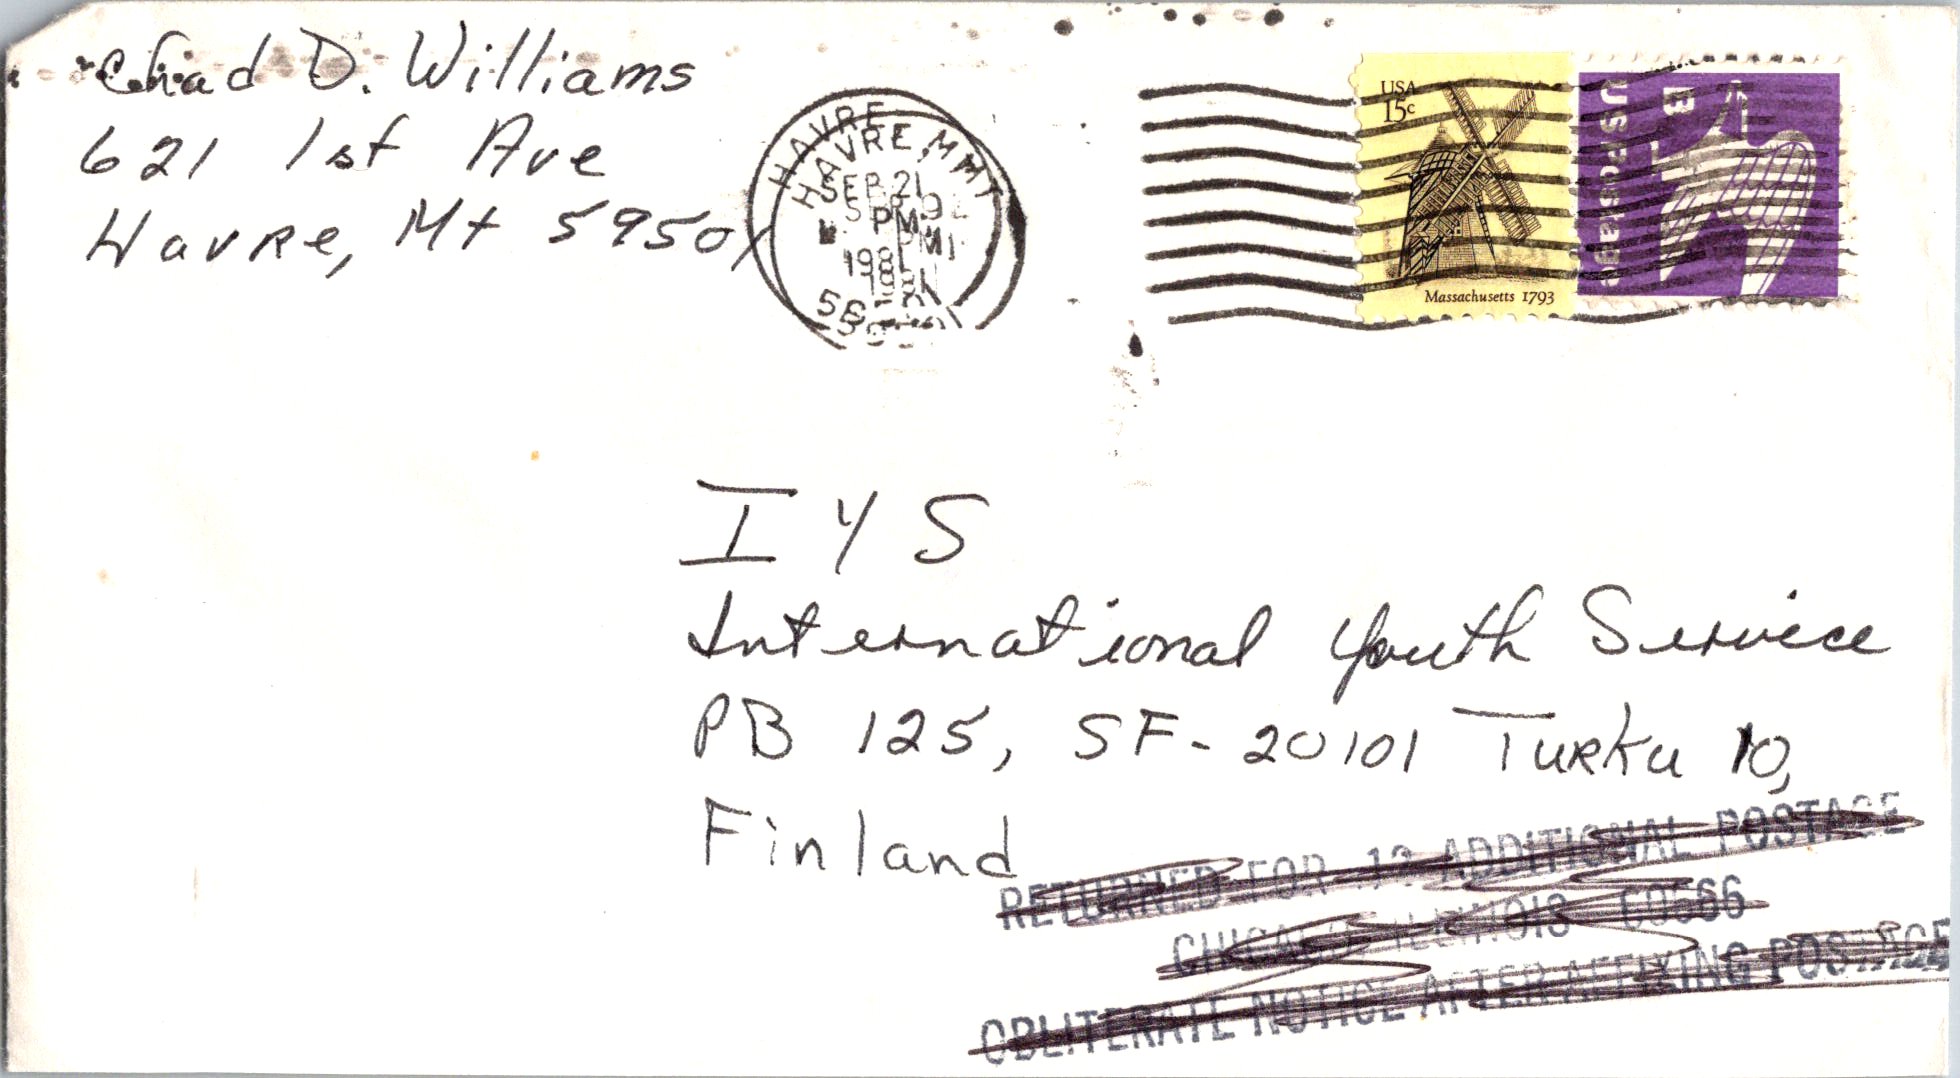 Chad D. Williams
621 1st Ave
Havre, Mt 59501
HAVRE
HAVRE, MT
SEP 21
PM
PM
1981
USA
15c
Massachusetts 1793
B
US Postage
I Y S
International Youth Service
PB 125, SF-20101 Turku 10,
Finland
RETURNED FOR ADDITIONAL POSTAGE
CHICAGO ILLINOIS 60666
OBLITERATE NOTICE AFTER AFFIXING POSTAGE